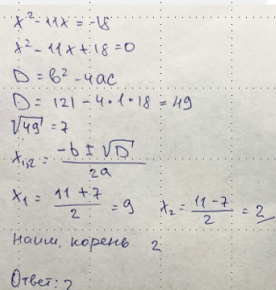 x² - 11x = -18
x² - 11x + 18 = 0
D = b² - 4ac
D = 121 - 4 · 1 · 18 = 49
√49 = 7
x₁,₂ = (-b ± √D) / 2a
x₁ = (11 + 7) / 2 = 9 x₂ = (11 - 7) / 2 = 2
наим. корень 2
Ответ: 2